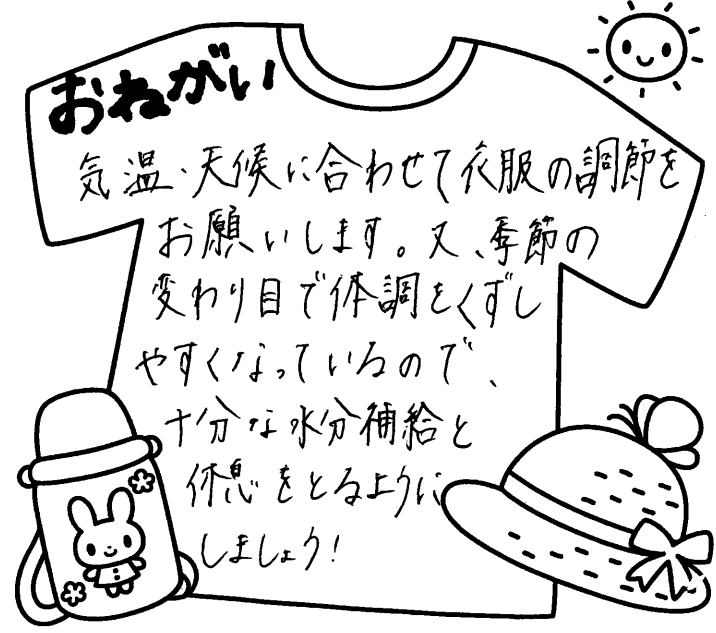 おねがい
気温・天候に合わせて衣服の調節を
お願いします。又、季節の
変わり目で体調をくずし
やすくなっているので、
十分な水分補給と
休息をとるように
しましょう!